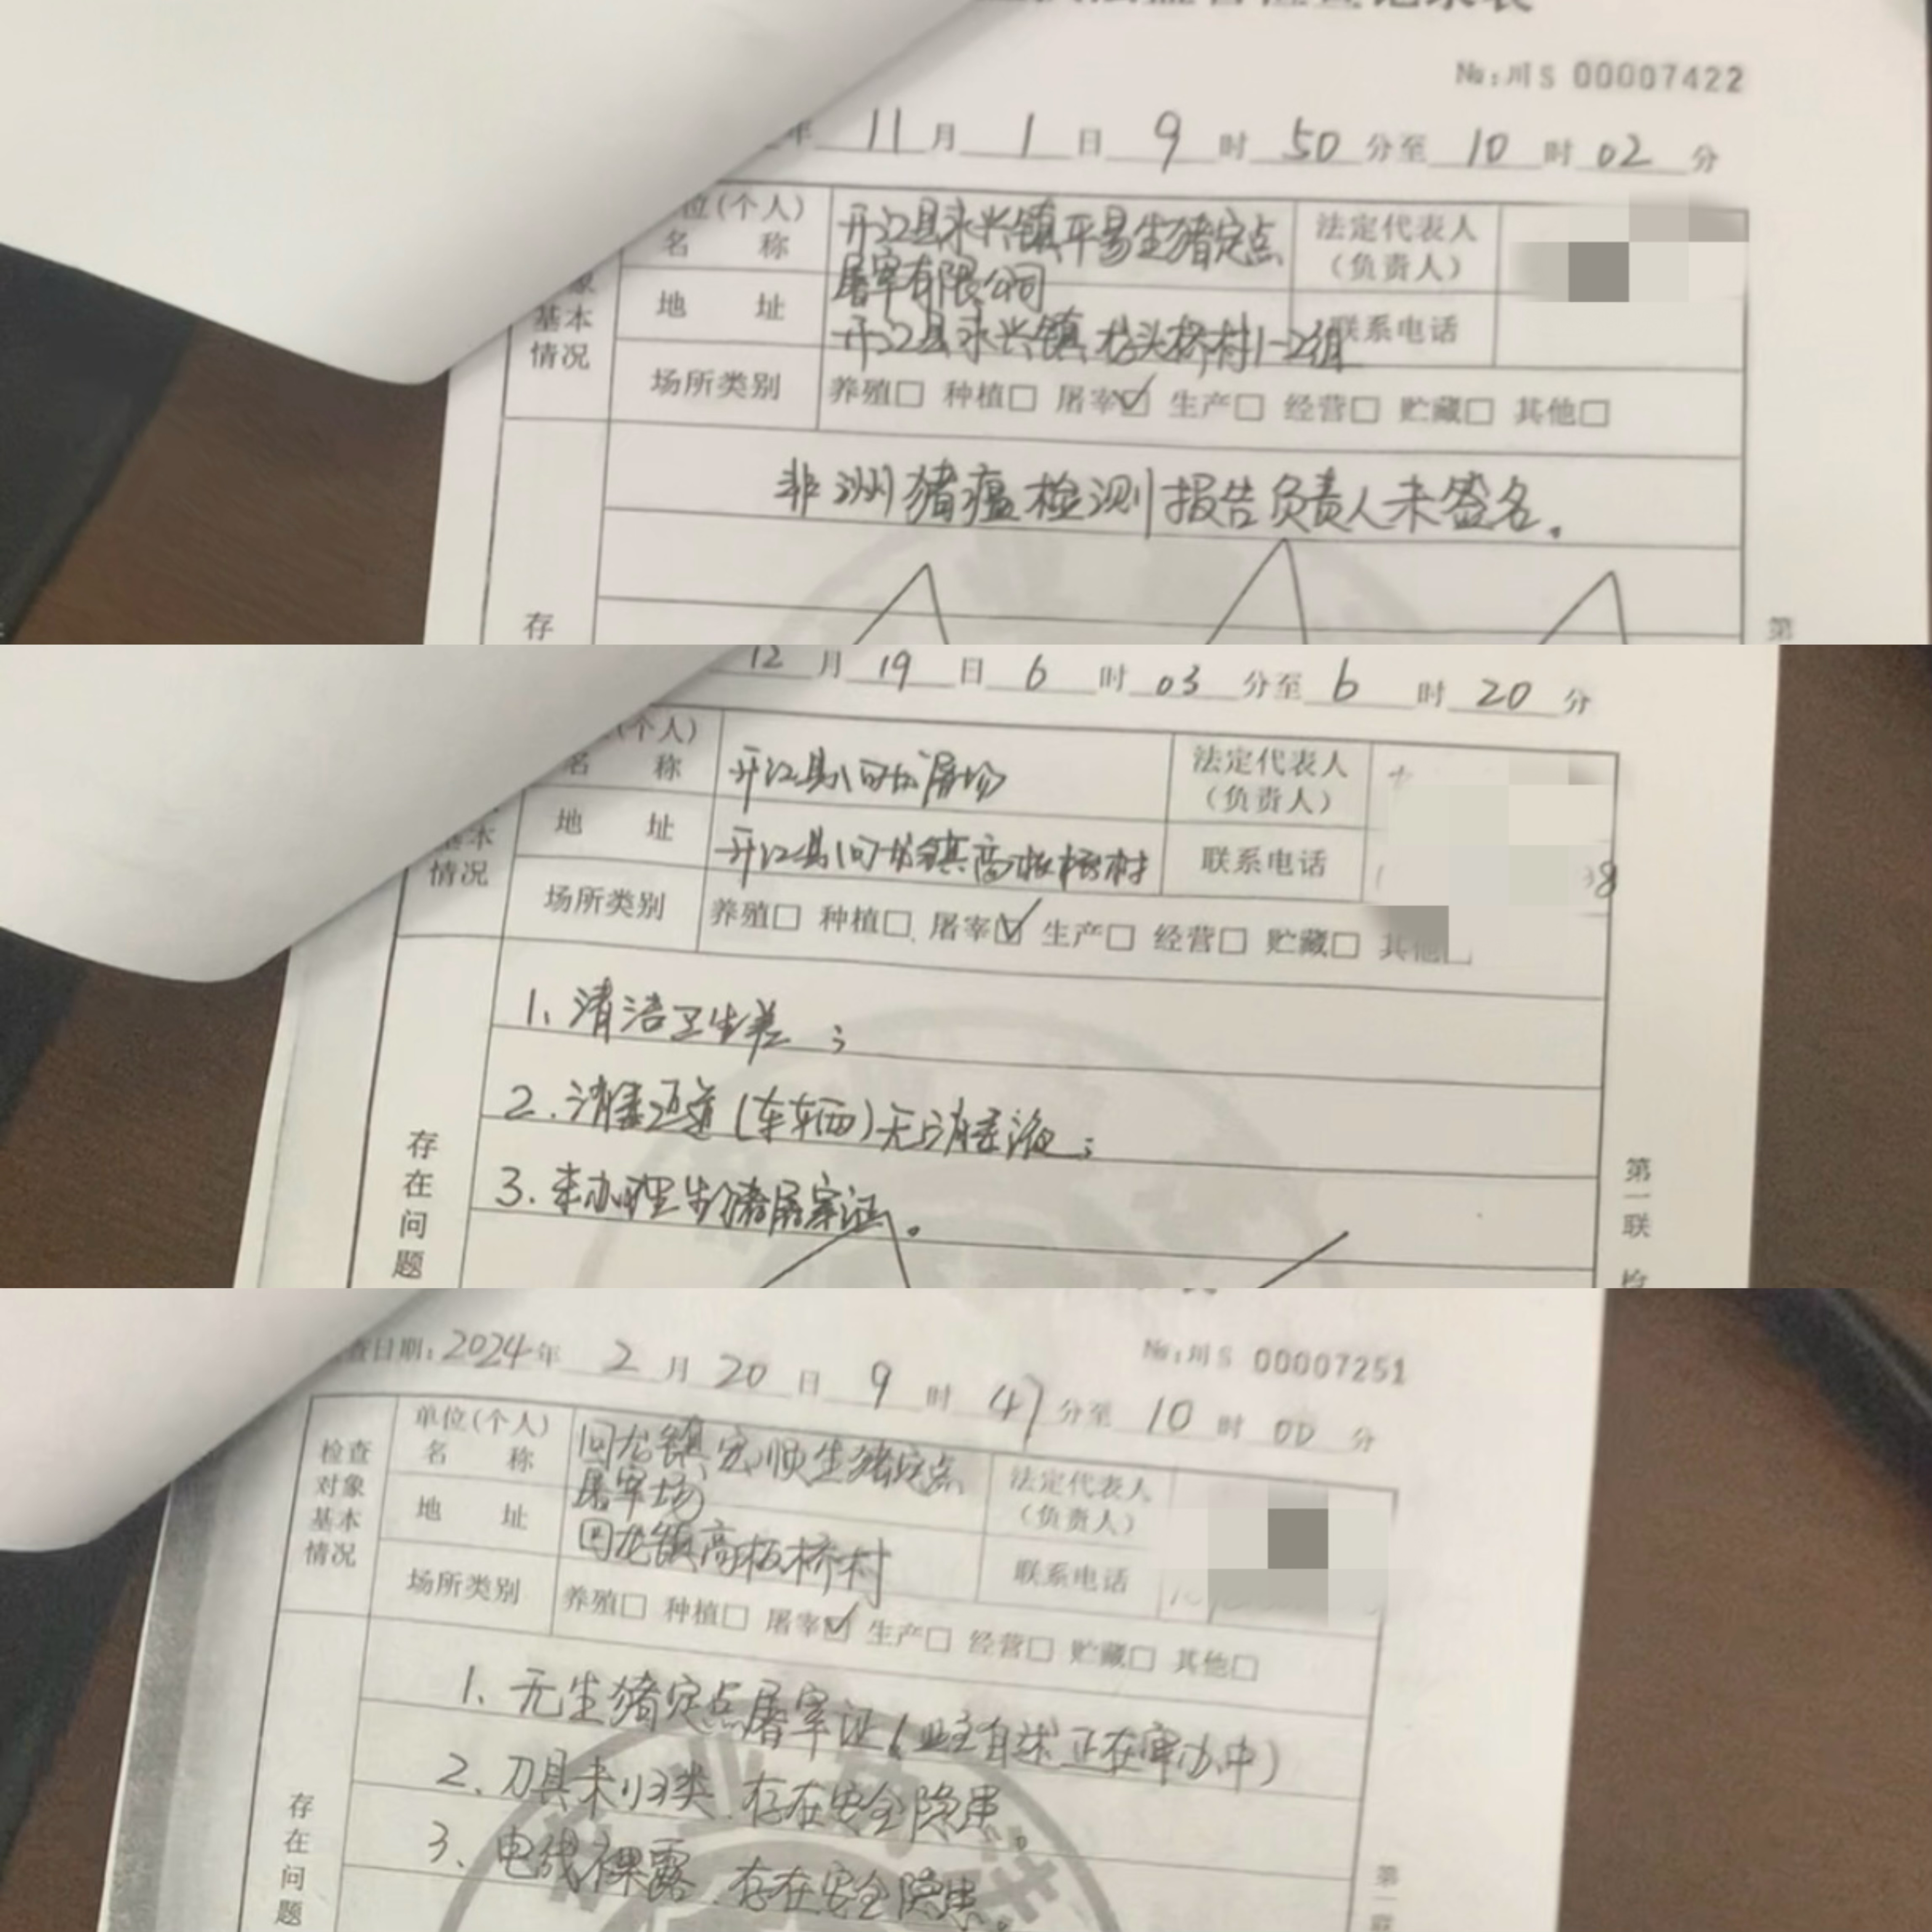 No:川S 00007422
年 11 月 1 日 9 时 50 分至 10 时 02 分
位(个人)
名 称
开江县永兴镇平易生猪定点
屠宰有限公司
法定代表人
(负责人)
地 址
开江县永兴镇龙头桥村1-2组
联系电话
基本
情况
场所类别
养殖□ 种植□ 屠宰☑ 生产□ 经营□ 贮藏□ 其他□
非洲猪瘟检测报告负责人未签名。
存
第
12 月 19 日 6 时 03 分至 6 时 20 分
(个人)
名 称
开江县回龙屠场
法定代表人
(负责人)
地 址
开江县回龙镇高板桥村
联系电话
8
基本
情况
场所类别
养殖□ 种植□ 屠宰☑ 生产□ 经营□ 贮藏□ 其他□
1、清洁卫生差;
2.消毒通道(车辆)无消毒液;
3.未办理生猪屠宰证。
存在问题
第一联
查日期:2024年 2 月 20 日 9 时 47 分至 10 时 00 分
No:川S 00007251
检查
对象
基本
情况
单位(个人)
名 称
回龙镇宏顺生猪定点
屠宰场
法定代表人
(负责人)
地 址
回龙镇高板桥村
联系电话
场所类别
养殖□ 种植□ 屠宰☑ 生产□ 经营□ 贮藏□ 其他□
1、无生猪定点屠宰证(业主自述正在审办中)
2、刀具未归类,存在安全隐患。
3、电线裸露,存在安全隐患。
存在问题
第一联